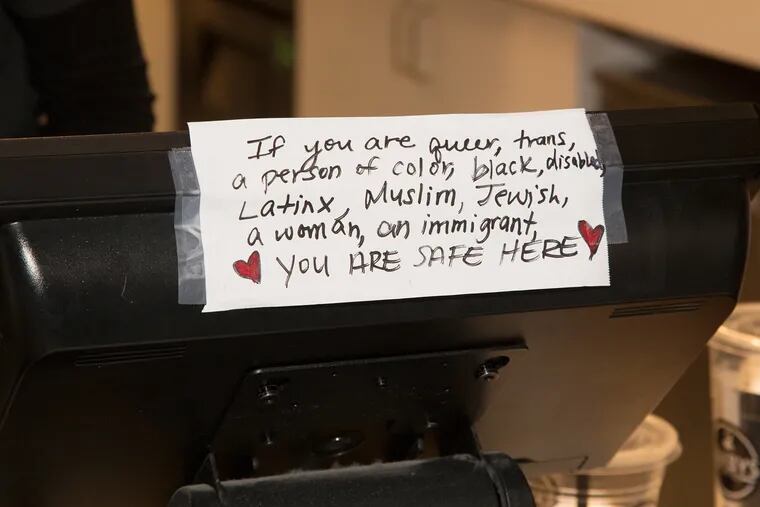 If you are queer, trans,
a person of color, black, disabled,
Latinx, Muslim, Jewish,
a woman, an immigrant,
YOU ARE SAFE HERE